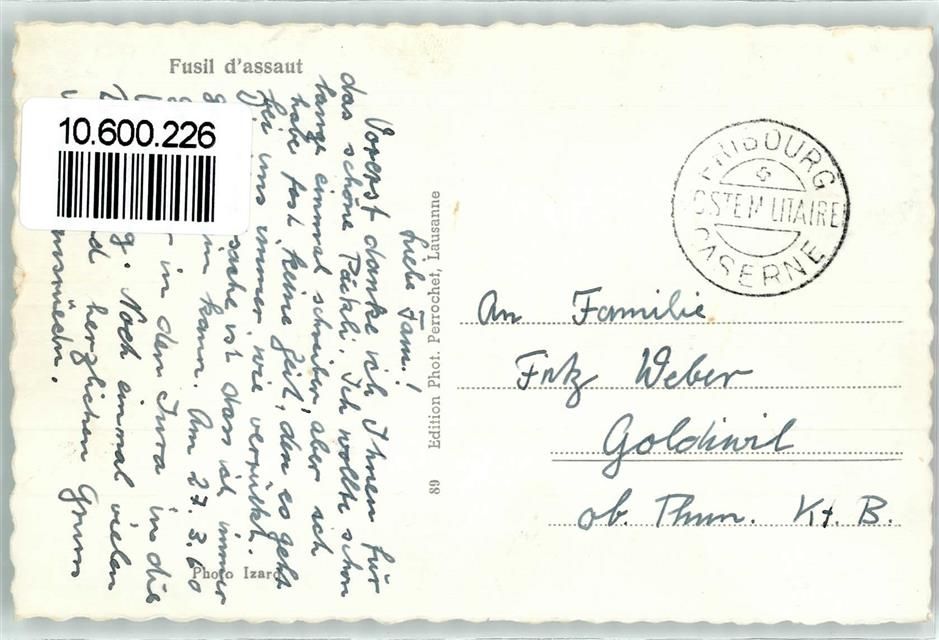 Fusil d'assaut
10.600.226
Liebe Fam.!
Vorerst danke ich Ihnen für
das schöne Päckli. Ich wollte schon
lange einmal schreiben aber ich
habe fast keine Zeit, den es geht
bei uns immer wie verrückt.
sache ist dass ich immer
kann. Am 27.3.60
in den Jura in die
Noch einmal vielen
herzlichen Gruss
Photo Izard
89 Edition Phot. Perrochet, Lausanne
FRIBOURG
POSTE MILITAIRE
CASERNE
An Familie
Fritz Weber
Goldiwil
ob. Thun. Kt. B.